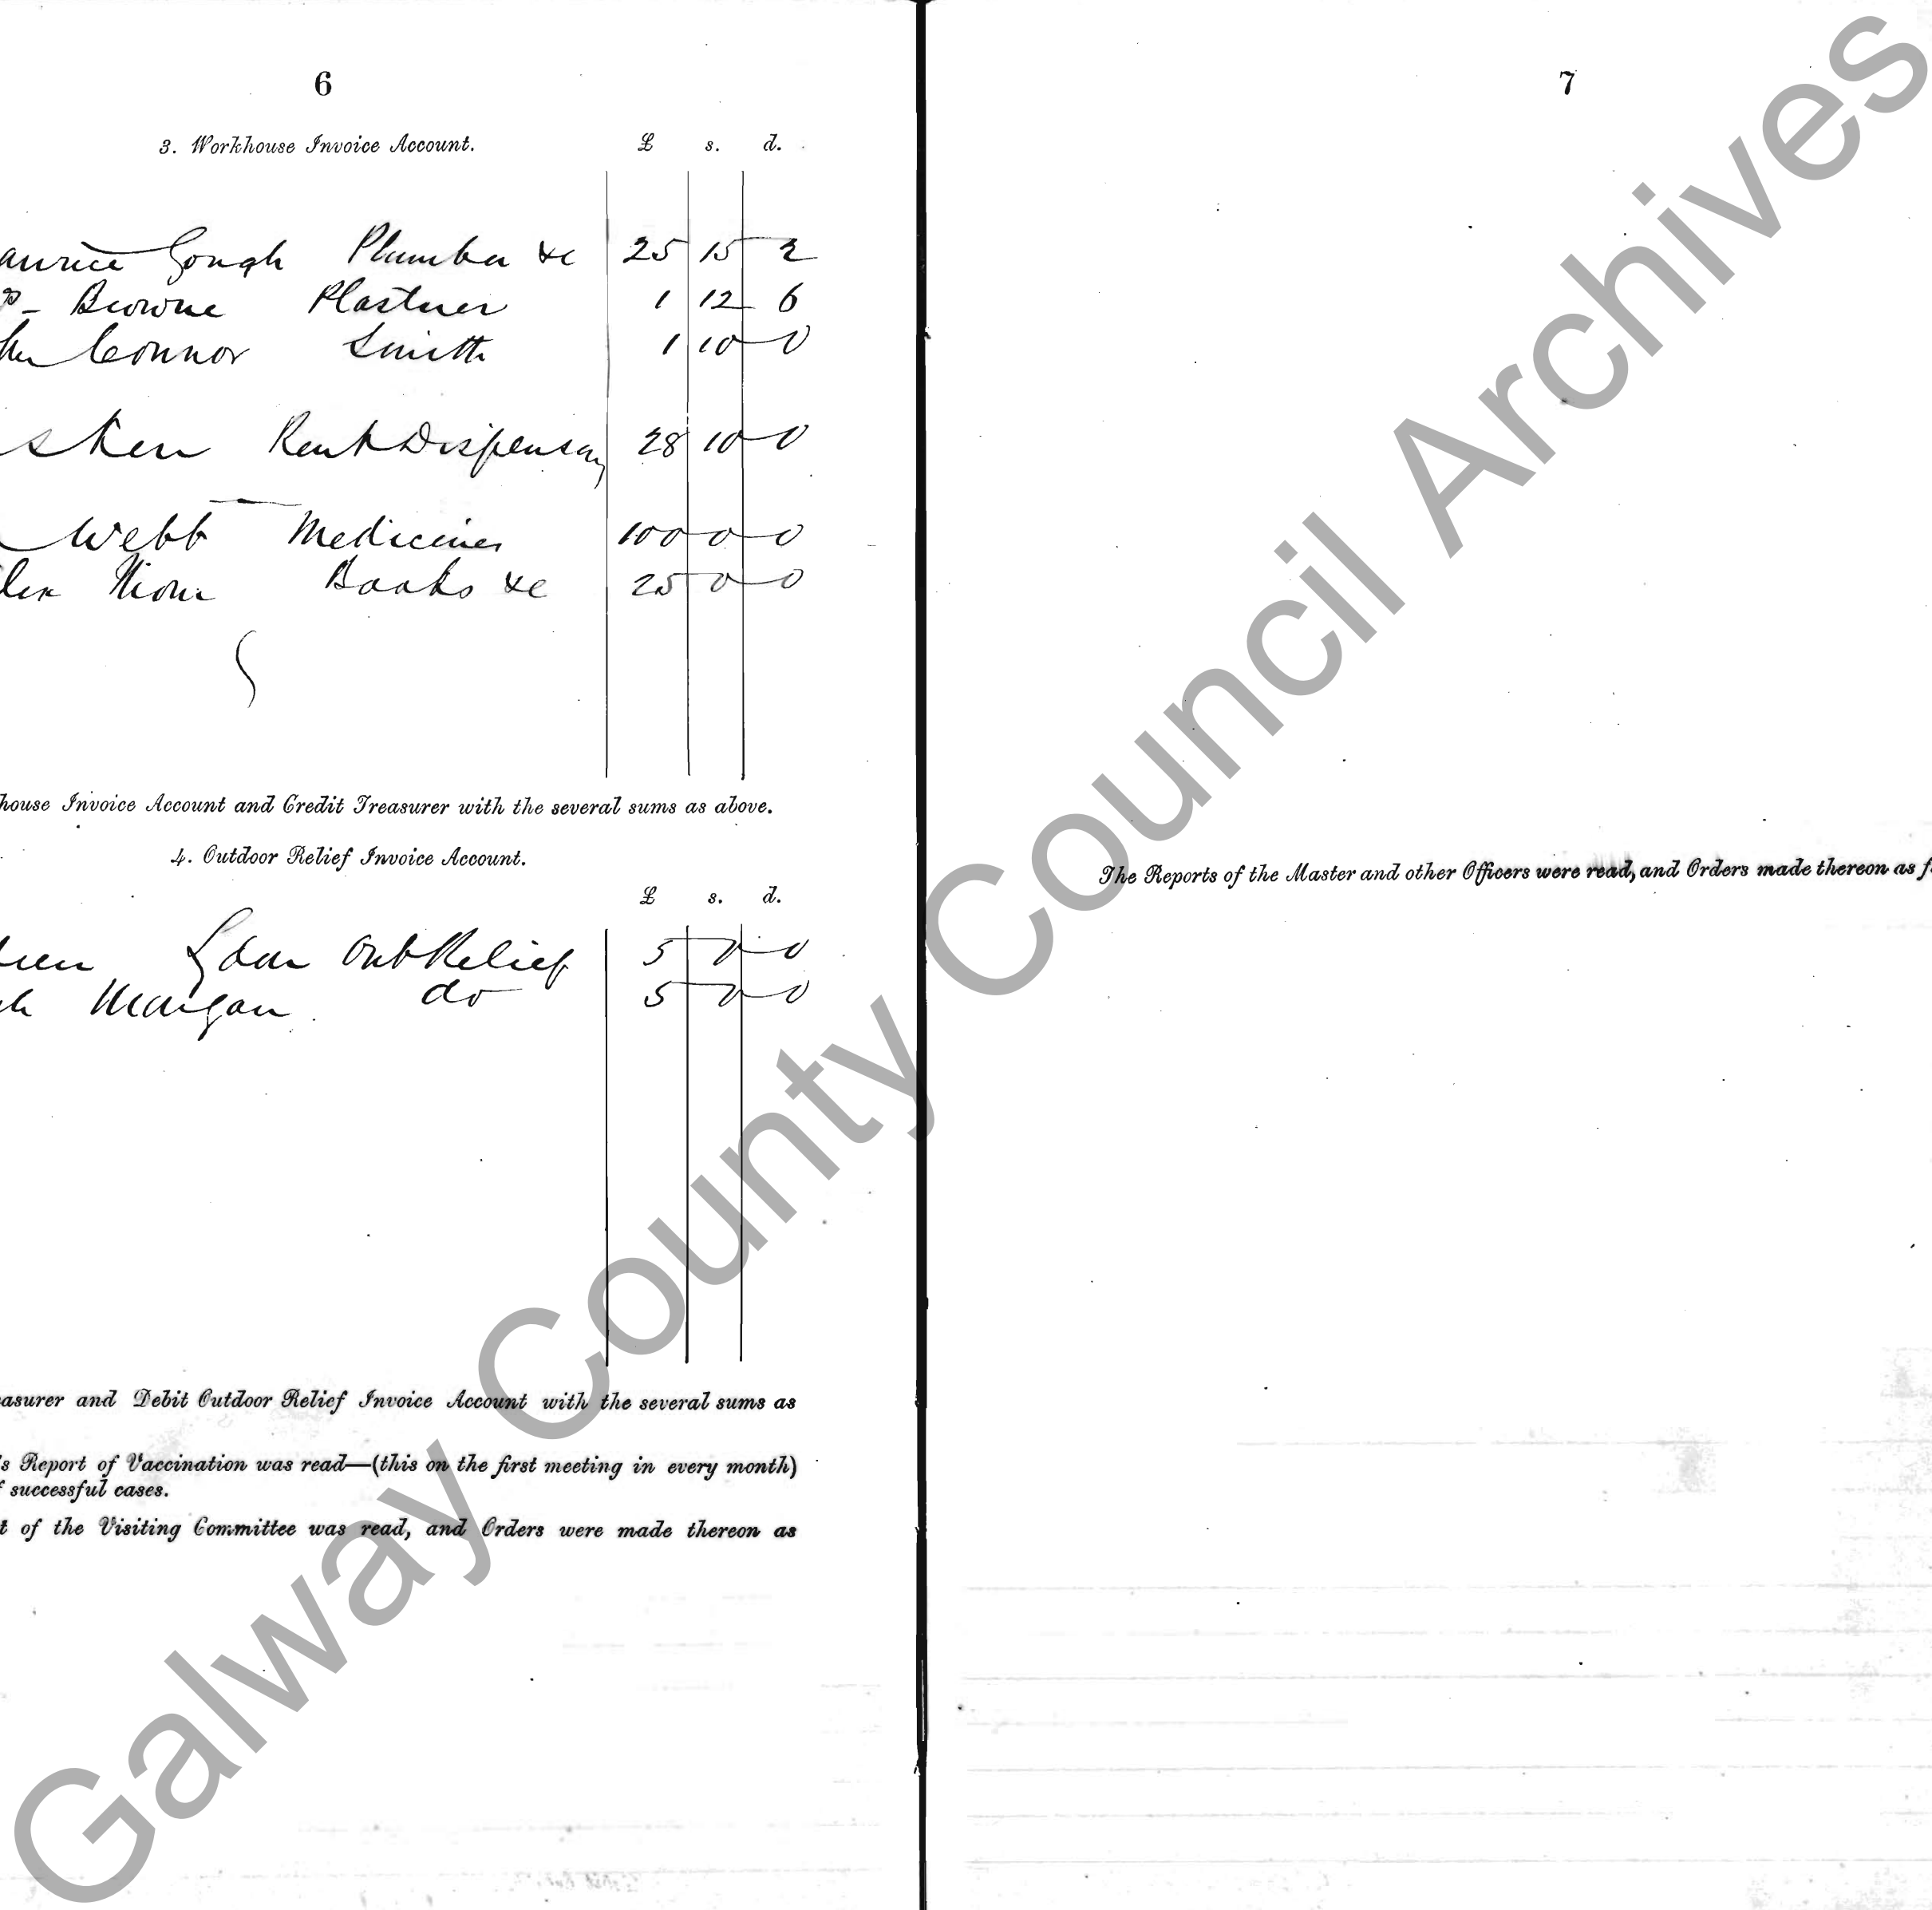 6
3. Workhouse Invoice Account. £ s. d.
Gough Plumber &c 25 15 2
Browne Plasterer 1 12 6
Connor Smith 1 10 0
Rent Dispensary 28 10 0
Webb Medicines 100 0 0
Thom Books &c 25 0 0
house Invoice Account and Credit Treasurer with the several sums as above.
4. Outdoor Relief Invoice Account.
£ s. d.
Out Relief 5 0 0
Morgan do 5 0 0
easurer and Debit Outdoor Relief Invoice Account with the several sums as
's Report of Vaccination was read—(this on the first meeting in every month)
f successful cases.
t of the Visiting Committee was read, and Orders were made thereon as
7
The Reports of the Master and other Officers were read, and Orders made thereon as f
Galway County Council Archives